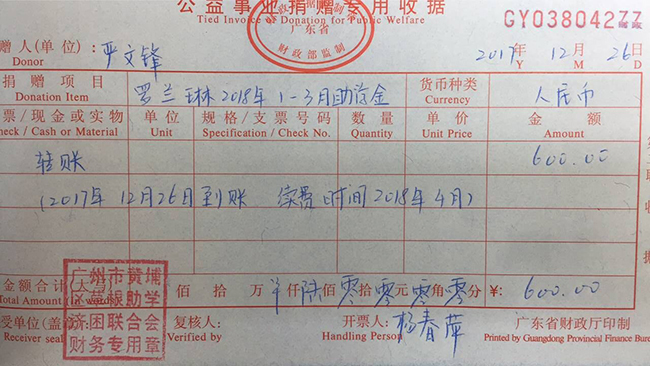 公益事业捐赠专用收据
Tied Invoice of Donation for Public Welfare
广东省
财政部监制
GY03804222
赠人(单位): 严文锋
Donor
2017年 12月 26日
Y M D
捐赠项目 罗兰琳2018年1-3月助学金 货币种类 人民币
Donation Item Currency
票/现金或实物 单位 规格/支票号码 数量 单价 金额
heck / Cash or Material Unit Specification / Check No. Quantity Unit Price Amount
转账 600.00
(2017年12月26日到账 续费时间2018年4月)
金额合计(大写) 佰 拾 万 仟陆佰零拾零元零角零分 ¥: 600.00
Total Amount (in words)
广州市黄埔
区草根助学
济困联合会
财务专用章
受单位(盖章): 复核人: 开票人: 杨春萍 广东省财政厅印制
Receiver seal Verified by Handling Person Printed by Guangdong Provincial Finance Bure